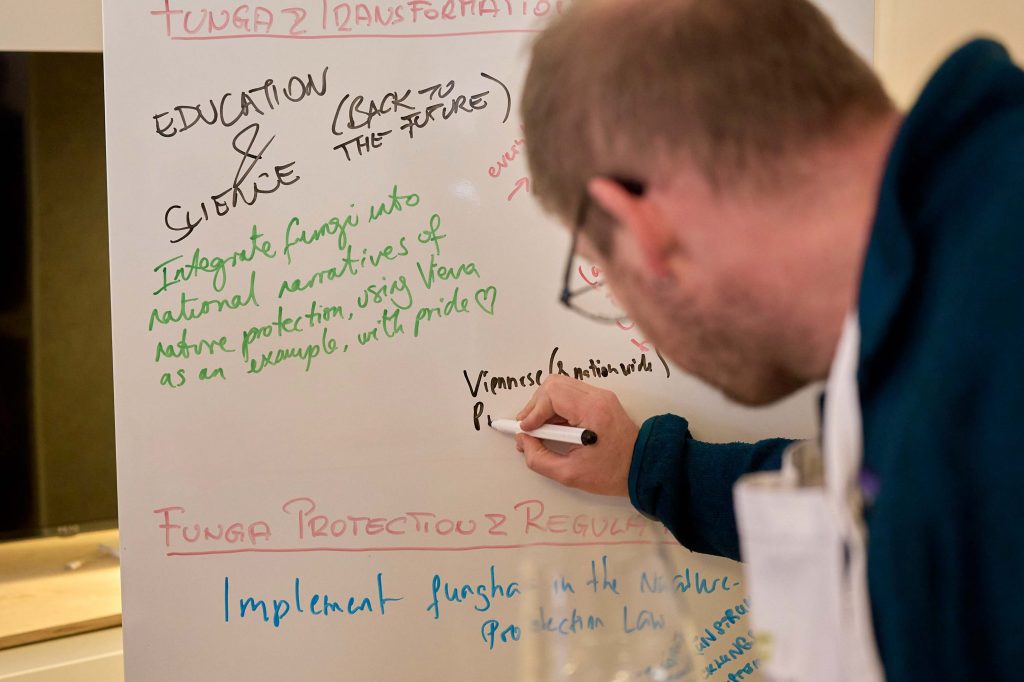 FUNGA & TRANSFORMATION
EDUCATION
&
SCIENCE
(BACK TO
THE FUTURE)
Integrate fungi into
national narratives of
nature protection, using Vienna
as an example, with pride ♡
Viennese (& nationwide)
FUNGA PROTECTION & REGULA
Implement fungha in the Nature-
Protection Law